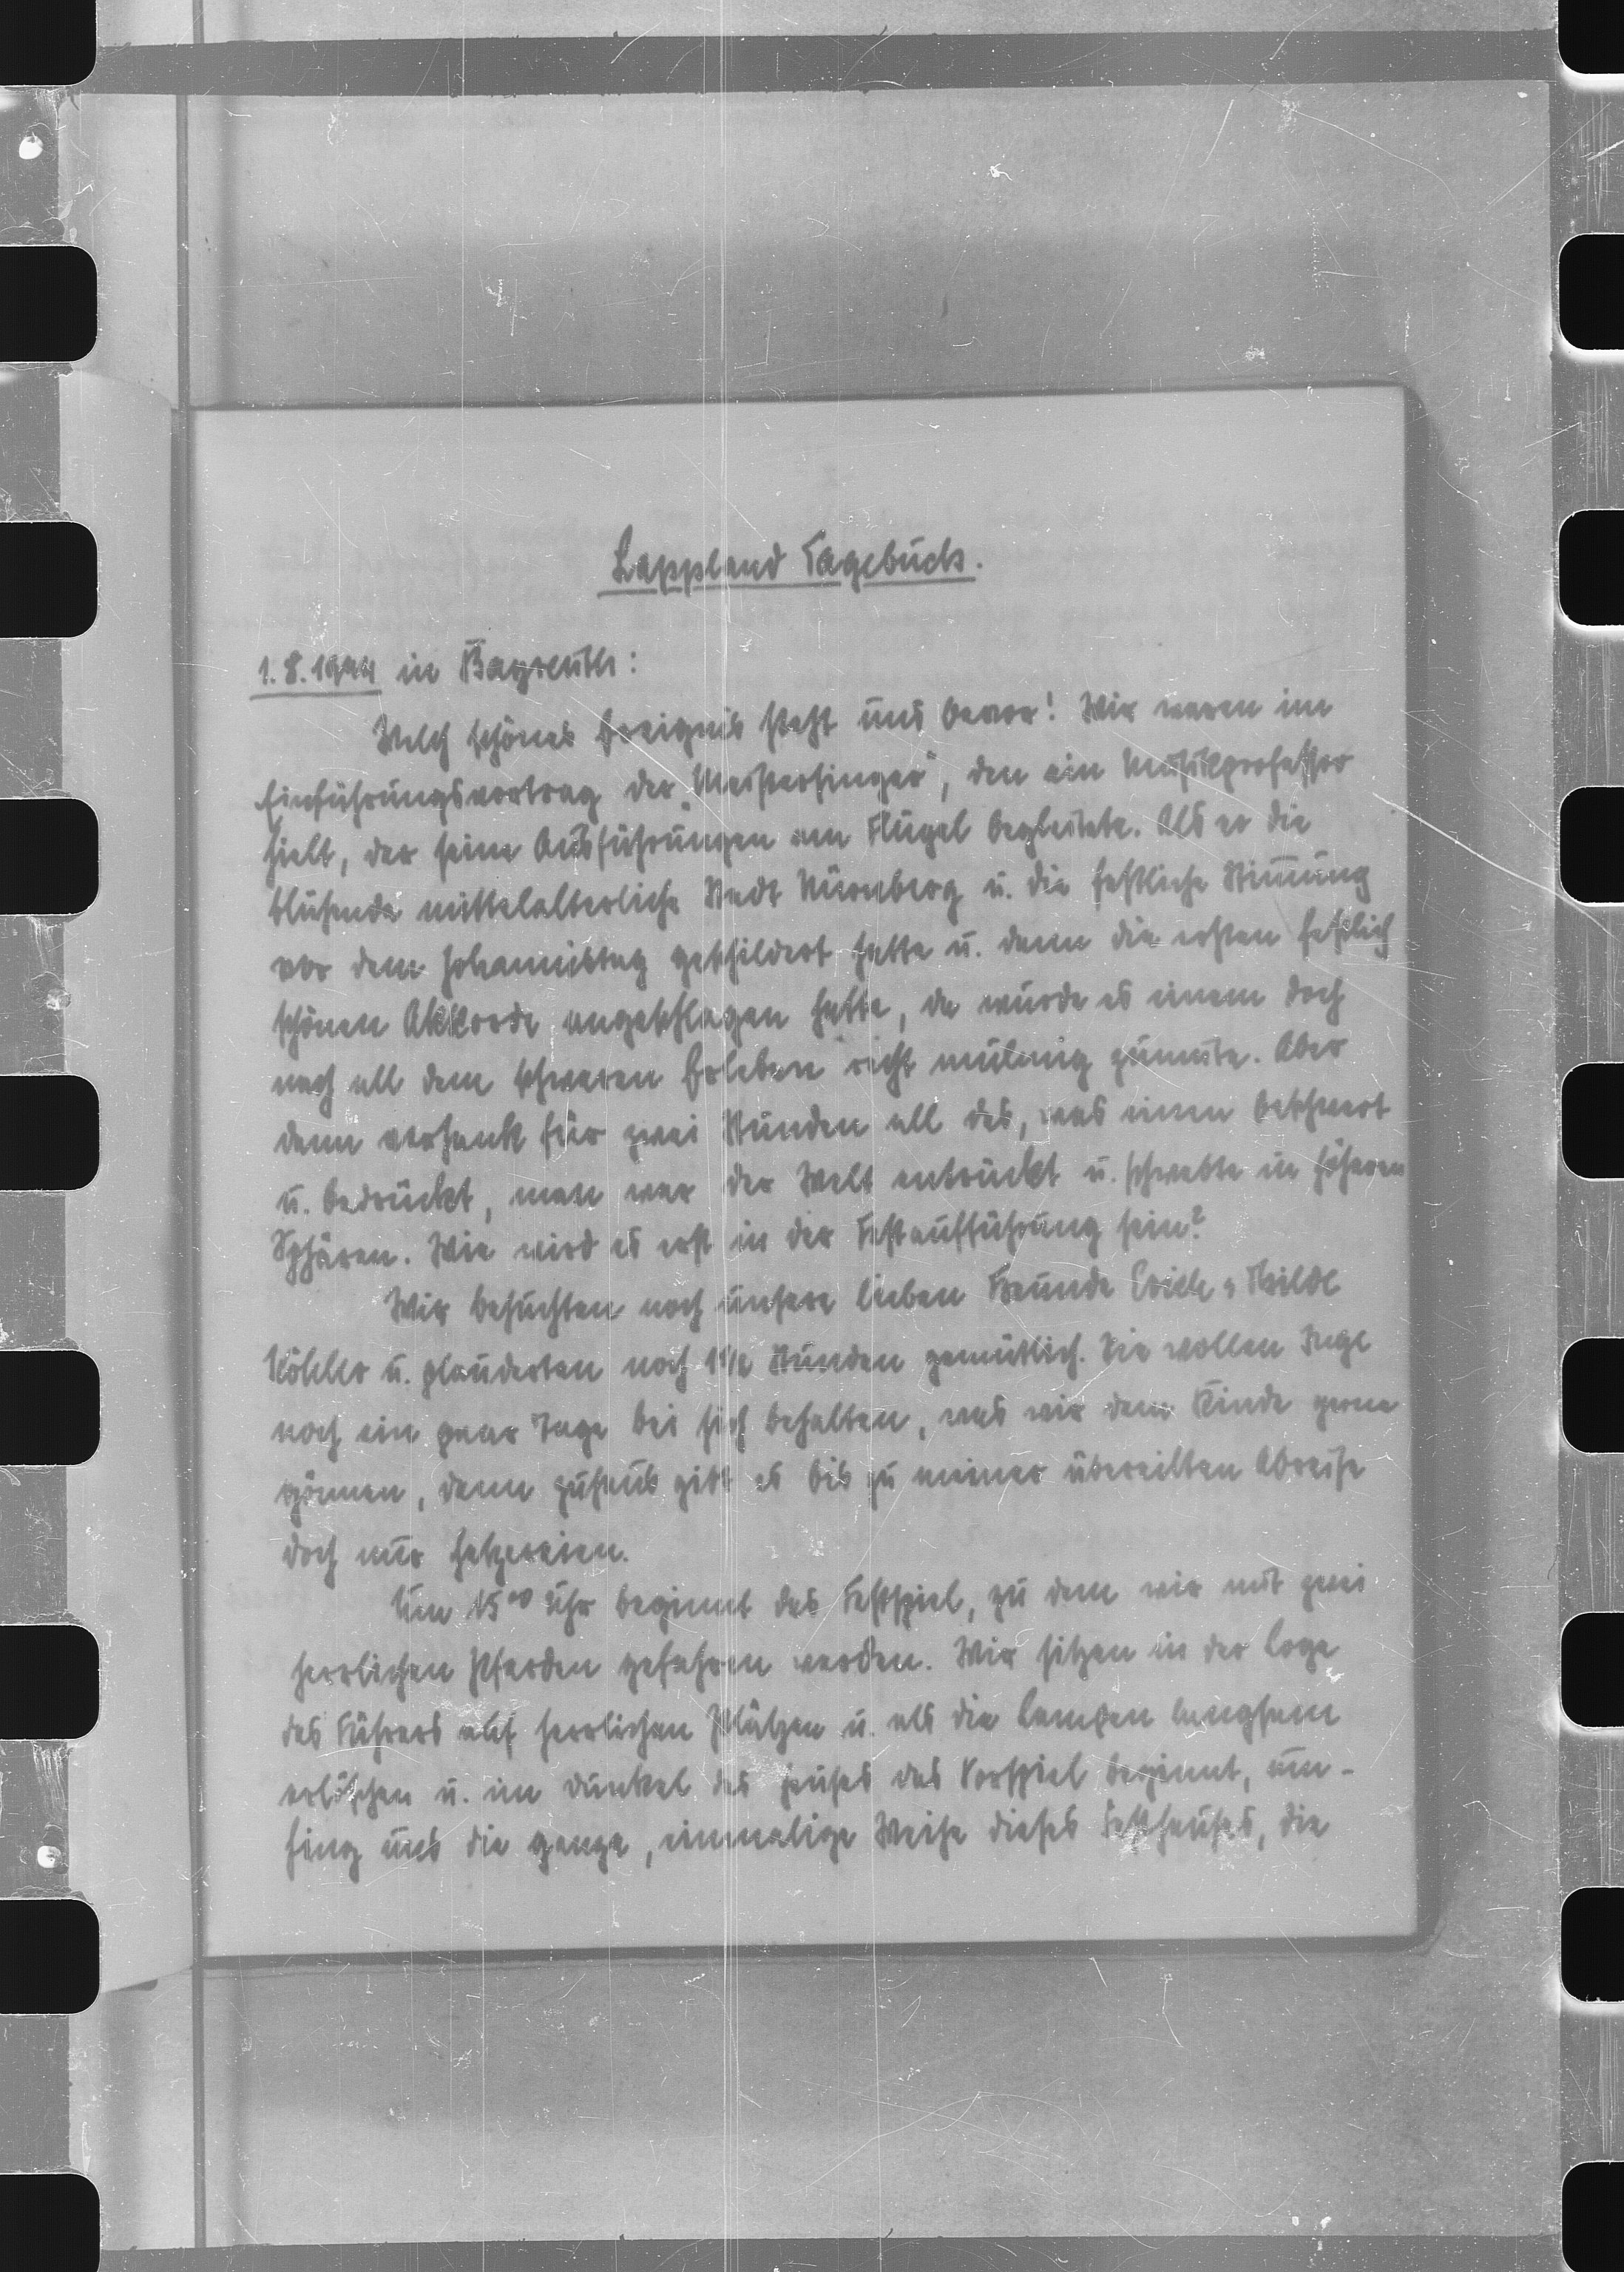 Lappland Tagebuch.
1.8.1944 in Bayreuth:
Welch schönes Ereignis steht uns bevor! Wir waren im
Einführungsvortrag der „Meistersinger", den ein Musikprofessor
hielt, der seine Ausführungen am Flügel begleitete. Als er die
blühende mittelalterliche Stadt Nürnberg u. die festliche Stimmung
vor dem Johannistag geschildert hatte u. dann die ersten festlich
schönen Akkorde angeschlagen hatte, da wurde es einem doch
nach all dem schweren Erleben recht mulmig zumute. Aber
dann versank für zwei Stunden all das, was einen beschwert
u. bedrückt, man war der Welt entrückt u. schwebte in höheren
Sphären. Wie wird es erst in der Festaufführung sein?
Wir besuchten noch unsere lieben Freunde Erich u. Thilde
Köhler u. plauderten noch 1½ Stunden gemütlich. Sie wollen Inge
noch ein paar Tage bei sich behalten, was wir dem Kinde gerne
gönnen, denn zuhaus gibt es bis zu meiner übereilten Abreise
doch nur Hetzereien.
Um 15⁰⁰ Uhr beginnt das Festspiel, zu dem wir mit zwei
herrlichen Pferden gefahren werden. Wir sitzen in der Loge
des Führers auf herrlichen Plätzen u. als die Lampen langsam
erlöschen u. im Dunkel des Hauses das Vorspiel beginnt, um-
fing uns die ganze, einmalige Weihe dieses Festhauses, die